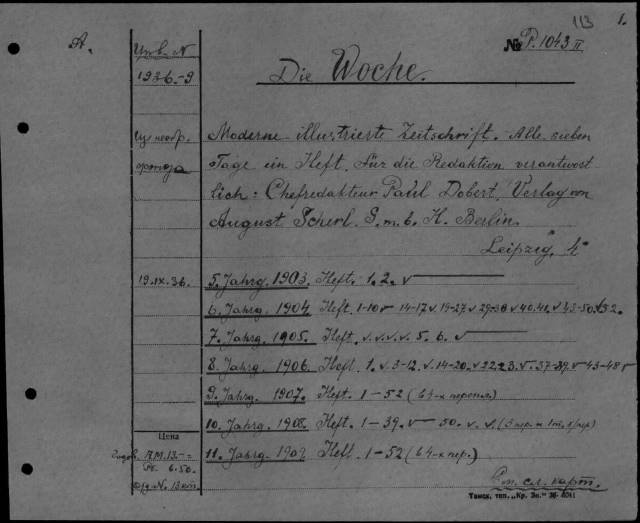 113 1.
A. Инв. N № P. 1043 II
1936-9 Die Woche.
Из необр. Moderne illustrierte Zeitschrift. Alle sieben
фонда Tage ein Heft. Für die Redaktion verantwort
lich: Chefredakteur Paul Dobert, Verlag von
August Scherl G.m.b.H. Berlin.
Leipzig, 4°
19.IX.36. 5. Jahrg. 1903. Heft. 1.2. v
6. Jahrg. 1904. Heft. 1-10 v 14-17 v 19-27 v 29-38 v 40.41. v 43-50. 52.
7. Jahrg. 1905. Heft. v.v.v.v. 5. 6. v
8. Jahrg. 1906. Heft 1. v 3-12. v 14-20. v 22.23. v 37-39. v 43-48 v
9. Jahrg. 1907. Heft. 1-52 (в 4-х переп.)
10. Jahrg. 1908. Heft. 1-39. v 50. v. v.
Цена
R.M. 13.- 11. Jahrg. 1909 Heft. 1-52 (в 4-х пер.)
6.50.
См. сл. карт.
Томск, тип. „Кр. Зн." 36- 4041